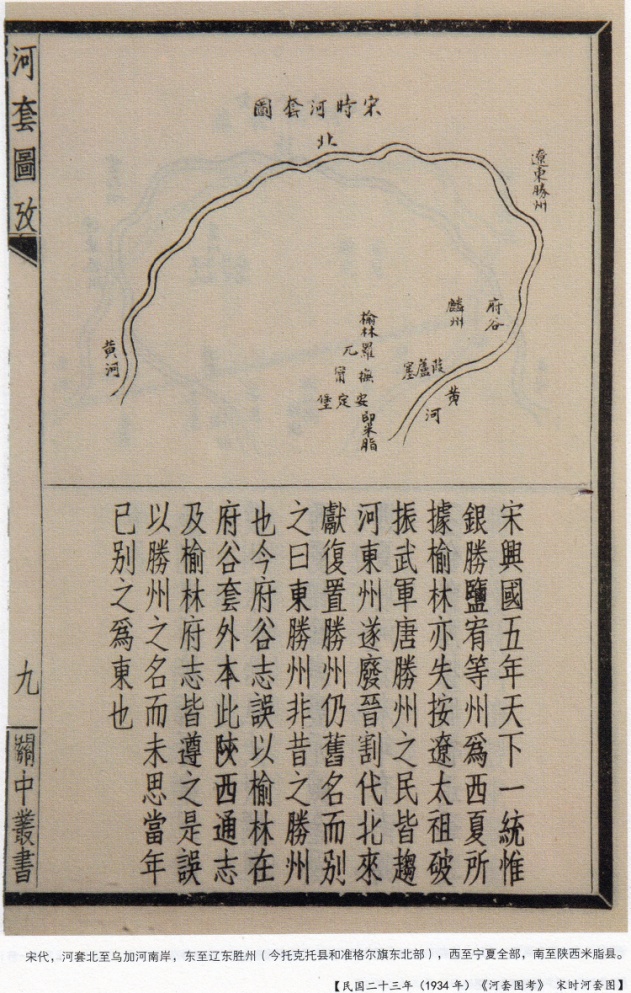 河套圖攷
九
關中叢書
宋時河套圖
北
遼東勝州
府谷
麟州
葭蘆寨
黃河
榆林
羅兀
撫
安
定
堡
即米脂
黃河
宋興國五年天下一統惟
銀勝鹽宥等州爲西夏所
據榆林亦失按遼太祖破
振武軍唐勝州之民皆趨
河東州遂廢晉割代北來
獻復置勝州仍舊名而别
之曰東勝州非昔之勝州
也今府谷志誤以榆林在
府谷套外本此陝西通志
及榆林府志皆遵之是誤
以勝州之名而未思當年
已别之爲東也
宋代，河套北至乌加河南岸，东至辽东胜州（今托克托县和准格尔旗东北部），西至宁夏全部，南至陕西米脂县。
【民国二十三年（1934年）《河套图考》 宋时河套图】